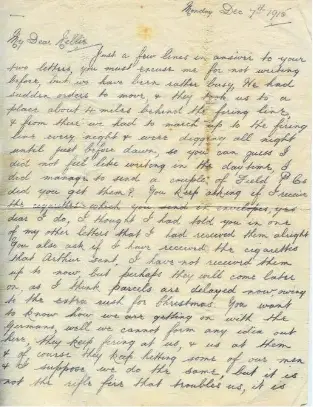 Monday Dec 7th 1915
My Dear Nellie
Just a few lines in answer to your
two letters, you must excuse me for not writing
before, but we have been rather busy, We had
sudden orders to move, & they took us to a
place about 4 miles behind the firing line,
& from there we had to march up to the firing
line every night & were digging all night
until just before dawn, so you can guess I
did not feel like writing in the daytime, I
did manage to send a couple of Field P Cds
did you get them?. You keep asking if I receive
the cigarettes which you send in envelopes, yes
dear I do, I thought I had told you in one
of my other letters that I had received them alright
You also ask if I have received the cigarettes
that Arthur sent, I have not received them
up to now, but perhaps they will come later
on, as I think parcels are delayed now owing
to the extra rush for Christmas. You want
to know how we are getting on with the
Germans, well we cannot form any idea out
here, they keep firing at us, & us at them
& of course they keep hitting some of our men
& I suppose we do the same, but it is
not the rifle fire that troubles us, it is